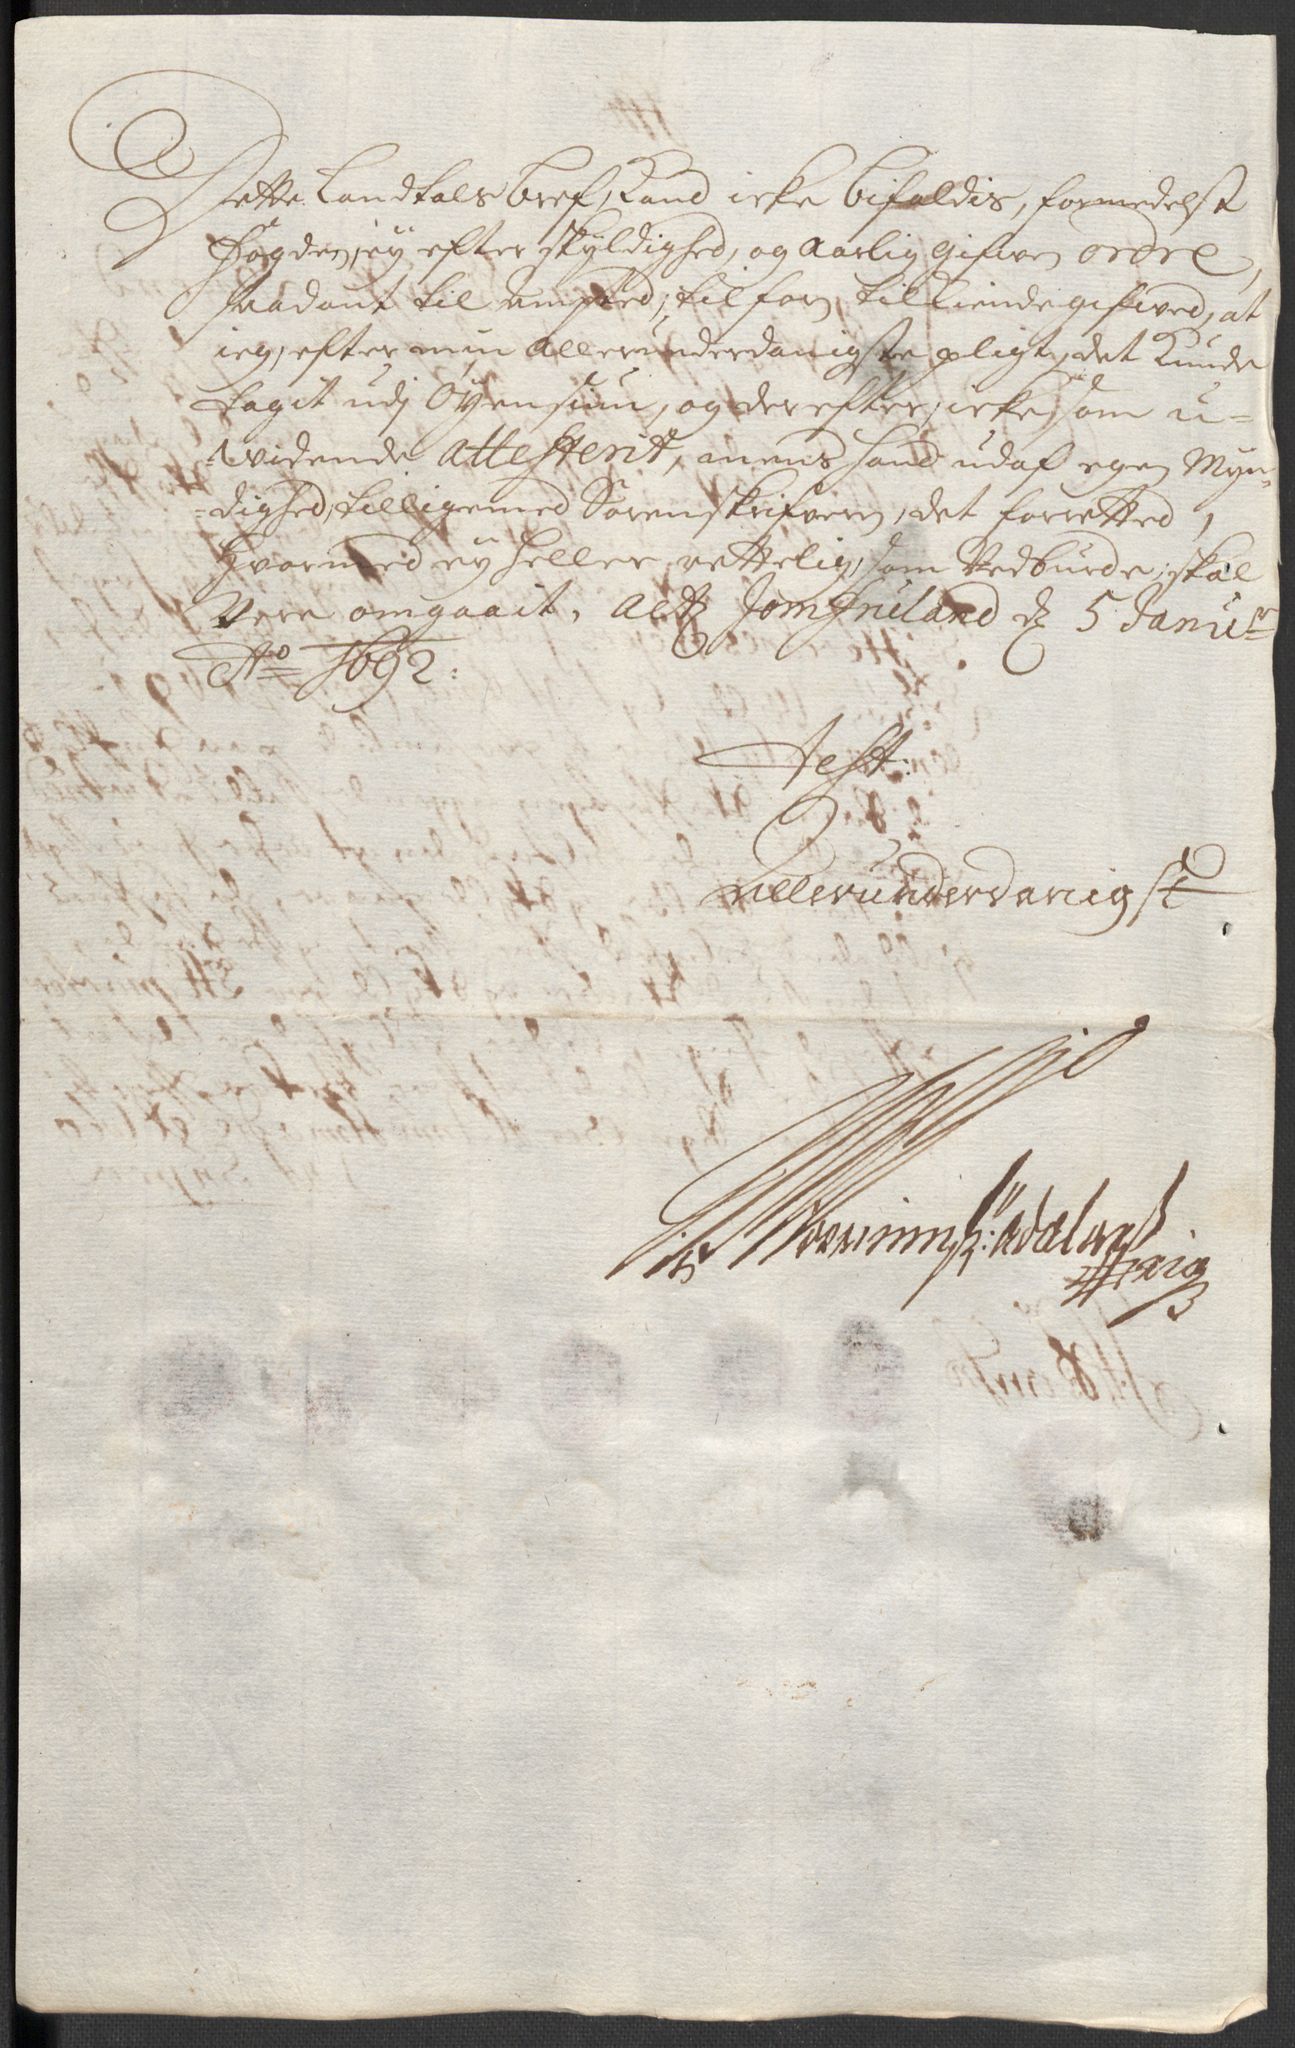 Dette Landtals bref, Kand icke bifaldis, formedelst
fogden, ey efter skyldighed, og aarlig gifwen ordre,
saadant til Ampted, tilforn tilkiende gifwed, at
ieg, efter min allerunderdanigste pligt, det kunde
tagit udj Øyensiun, og derefter, icke som u=
=widende attesterit, mens hand udaf egen Myn=
=dighed, tilligemed Sorenskrifvern, det forretted,
hvormed ey heller rettelig, som vedburde, skal
vere omgaait, Act Jomfruland d 5 Janu:
Ao 1692:
Test:
Allerunderdanigst